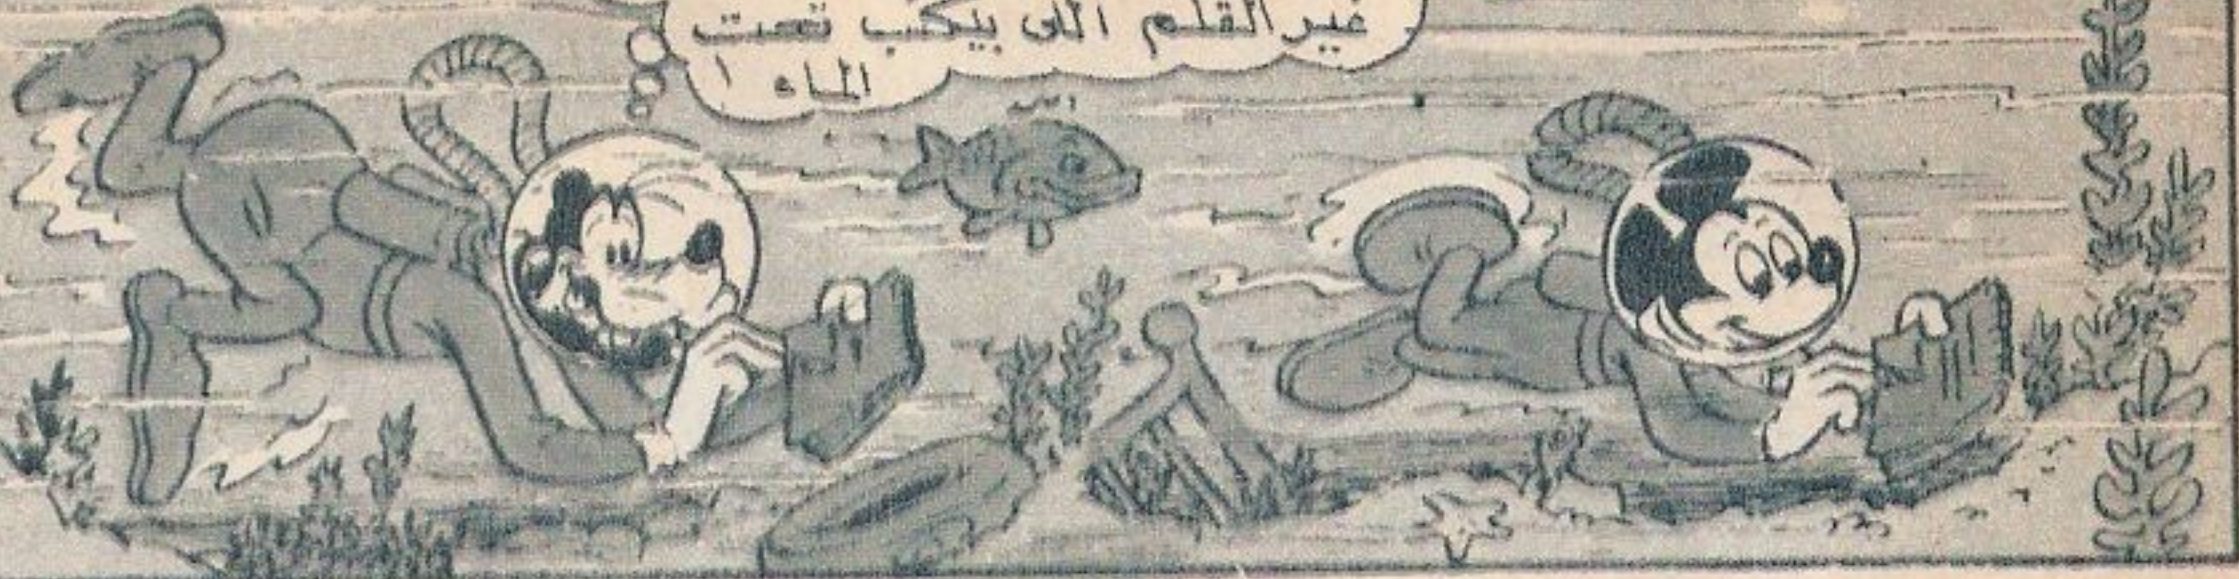 غير القلم اللى بيكتب تحت
الماء !